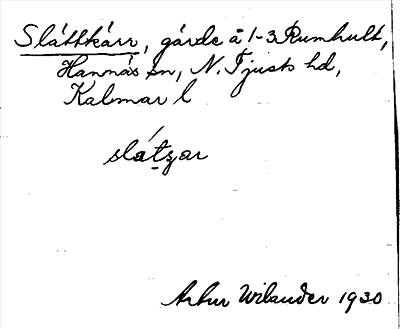 Slåttkärr, gärde å 1-3 Rumhult,
Hannäs sn, N. Tjusts hd,
Kalmar l
Artur Wilander 1930